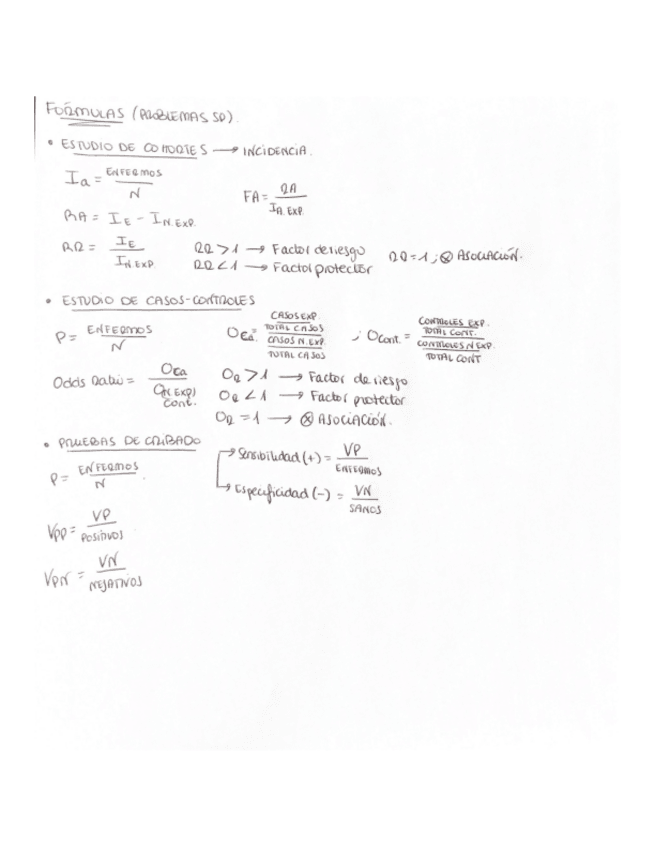 FÓRMULAS (PROBLEMAS SP).
• ESTUDIO DE COHORTES → INCIDENCIA.
Ia = ENFERMOS / N
FA = RA / Ia. EXP.
RA = IE - IN. EXP.
RR = IE / IN EXP.
RR > 1 → Factor de riesgo
RR < 1 → Factor protector
RR = 1 ; ⊗ ASOCIACIÓN.
• ESTUDIO DE CASOS-CONTROLES
P = ENFERMOS / N
OCa. = (CASOS EXP. / TOTAL CASOS) / (CASOS N. EXP. / TOTAL CASOS) ; OCont. = (CONTROLES EXP. / TOTAL CONT.) / (CONTROLES N EXP. / TOTAL CONT)
Odds Ratio = OCa / O(N EXP) Cont.
OR > 1 → Factor de riesgo
OR < 1 → Factor protector
OR = 1 → ⊗ ASOCIACIÓN.
• PRUEBAS DE CRIBADO
P = ENFERMOS / N.
→ Sensibilidad (+) = VP / ENFERMOS
→ Especificidad (-) = VN / SANOS
VPP = VP / POSITIVOS
VPN = VN / NEGATIVOS